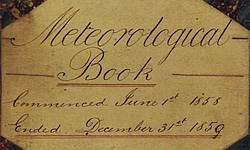 Meteorological
Book
Commenced June 1st 1858
Ended December 31st 1859